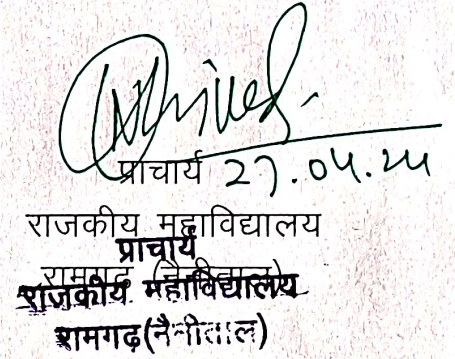 प्राचार्य 27.04.24
राजकीय महाविद्यालय
प्राचार्य
रामगढ़ (नैनीताल)
राजकीय महाविद्यालय
रामगढ़(नैनीताल)